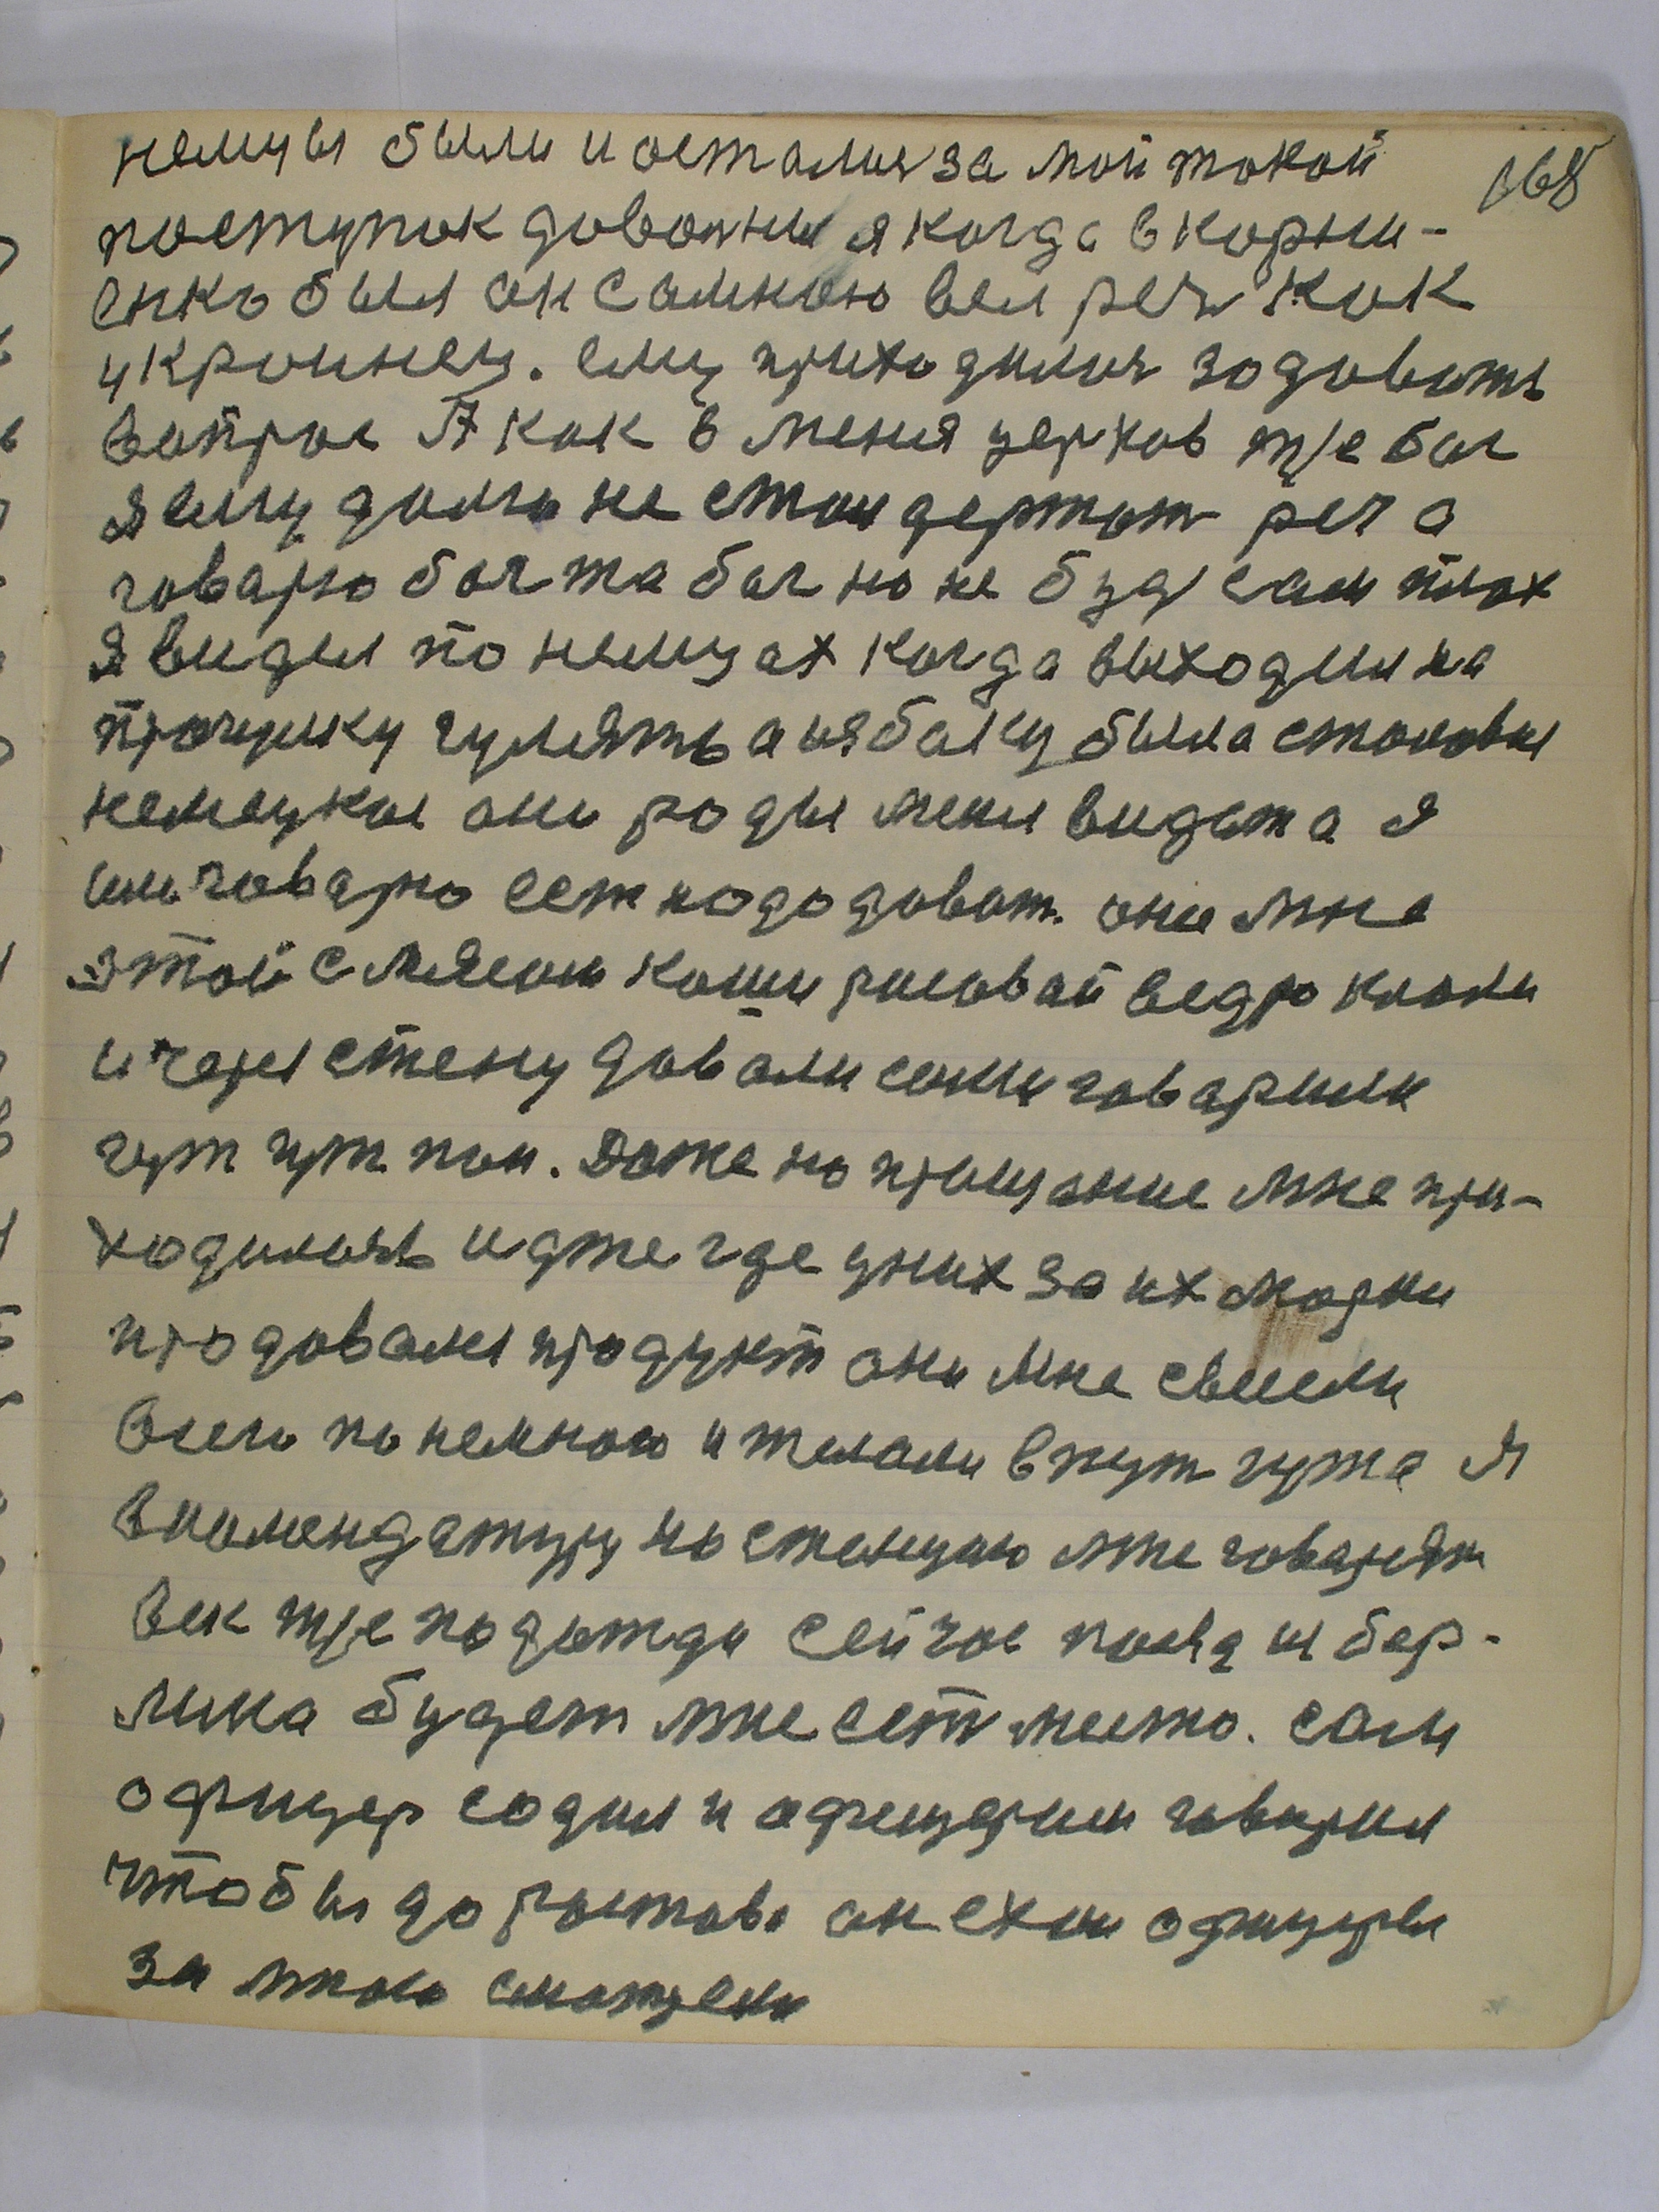 168
немцы были и осталис за мой токой
поступок довольны я когда в корни-
енко был он самною вел реч как
украинец. ему приходилос задовать
вопрос А как в меня церков тре бог
я ему долго не стои держат реч а
говарю бог та бог но не буд сам плох
я видел по немцах когда выходил на
прогулку гулять а избоку была столовы
немецкы они рады меня видет а я
им говарю ест нододоват. они мне
этой с мясом каши рисовай ведро клали
и через стену довали сами говарили
гут гут пан. Даже на прощание мне при-
ходилось идже где у них за их марки
продовали продукт они мне свесили
всего по немного и желали в пут гута я
в комендатуру на станцию мне говарят
век тре подожди сейчас поезд из бер-
лина будет мне ест место. сам
офицер садил и офицерам говарил
чтобы до ростова он ехал офицеры
за мною смотрели